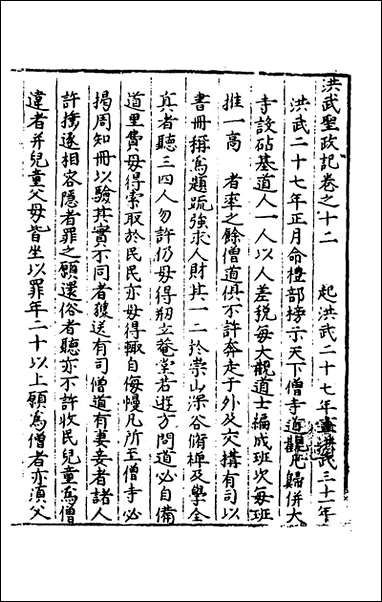 洪武聖政記卷之十二　　起洪武二十七年盡洪武三十一年
洪武二十七年正月命禮部榜示天下僧寺道觀凡歸併大
寺設砧基道人一人以人差稅每大觀道士編成班次每班
推一高　者率之餘僧道俱不許奔走于外及交搆有司以
書冊稱為題疏強求人財其一二於崇山深谷脩禪及學全
真者聽三四人勿許仍毋得剏立菴堂若遊方問道必自備
道里費毋得索取於民民亦毋得輒自侮慢凡所至僧寺必
揭周知冊以驗其實不同者獲送有司僧道有妻妾者諸人
許搥逐相容隱者罪之願還俗者聽亦不許收民兒童為僧
違者并兒童父母皆坐以罪年二十以上願為僧者亦須父